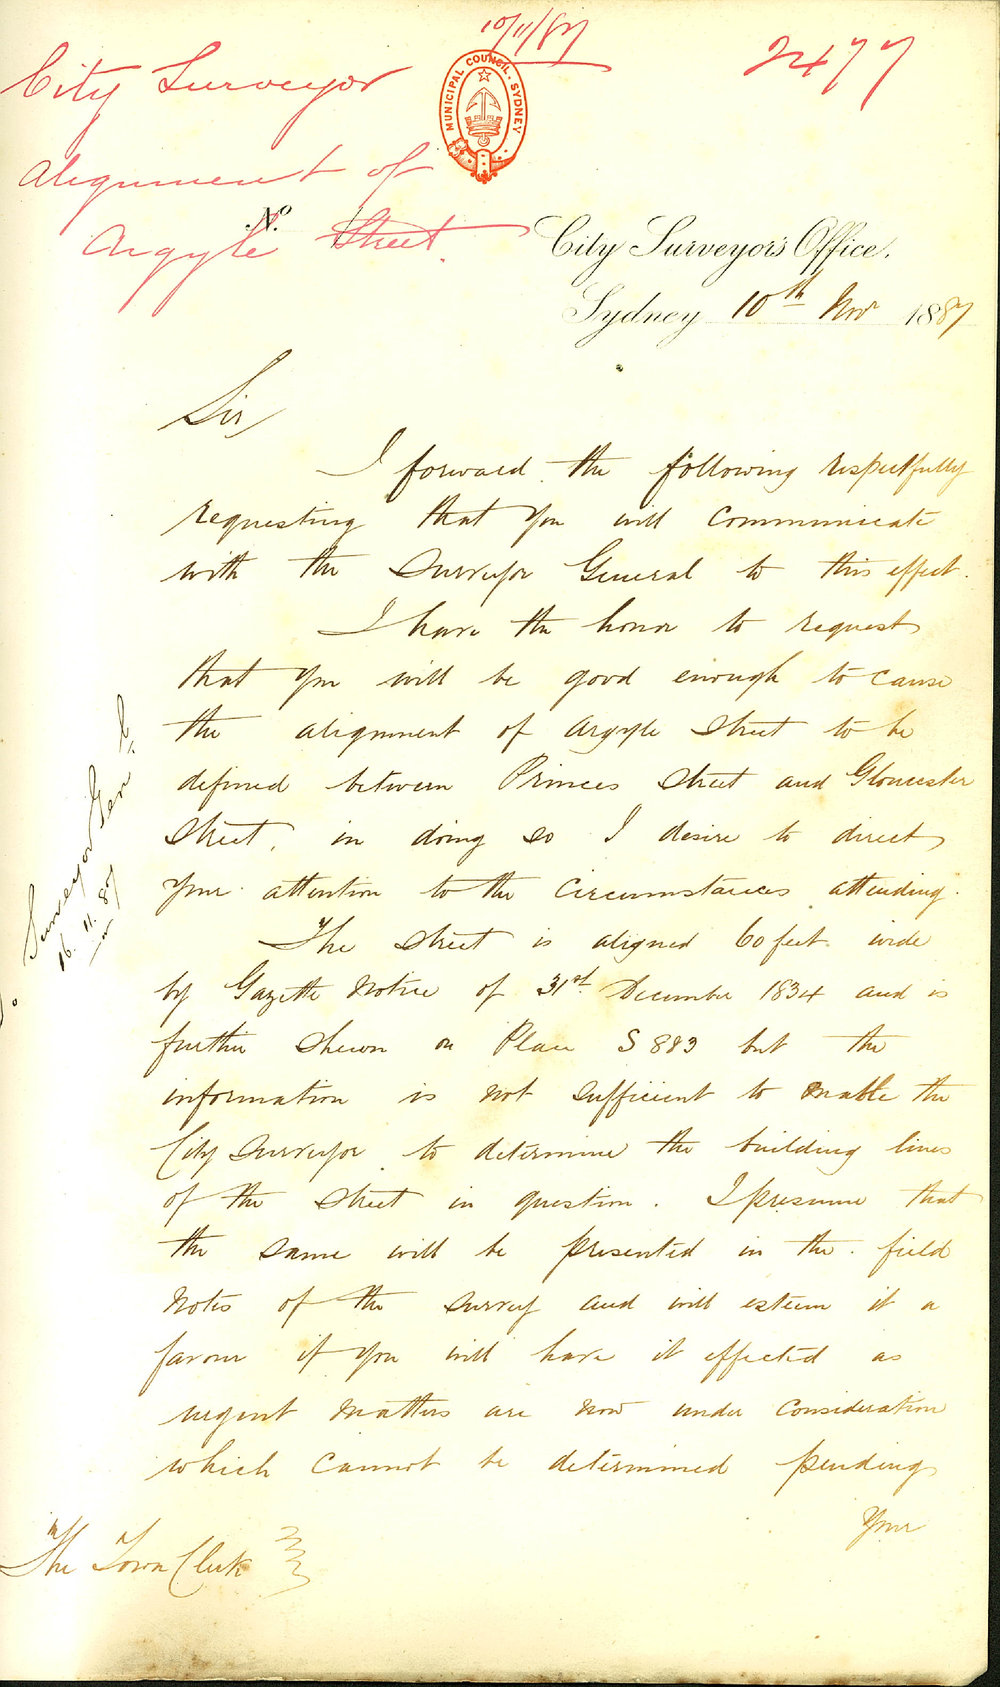 10/11/87
2477
City Surveyor
Alignment of
Argyle Street.
MUNICIPAL COUNCIL. SYDNEY
No.
City Surveyor's Office,
Sydney 10th Nov 1887
Sir,
I forward the following respectfully
requesting that you will communicate
with the Surveyor General to this effect.
I have the honor to request
that you will be good enough to cause
the alignment of Argyle Street to be
defined between Princes Street and Gloucester
Street, in doing so I desire to direct
your attention to the circumstances attending.
The Street is aligned 60 feet wide
by Gazette Notice of 31st December 1834 and is
further shewn on Plan S 883 but the
information is not sufficient to enable the
City Surveyor to determine the building lines
of the Street in question. I presume that
the same will be presented in the field
notes of the survey and will esteem it a
favour if you will have it effected as
urgent matters are now under consideration
which cannot be determined pending
Your
The Town Clerk
Surveyor Gen
16.11.87